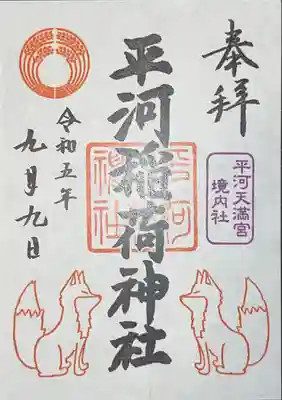 奉拝
平河天満宮
境内社
平河稲荷神社
平河
神社
令和五年
九月九日